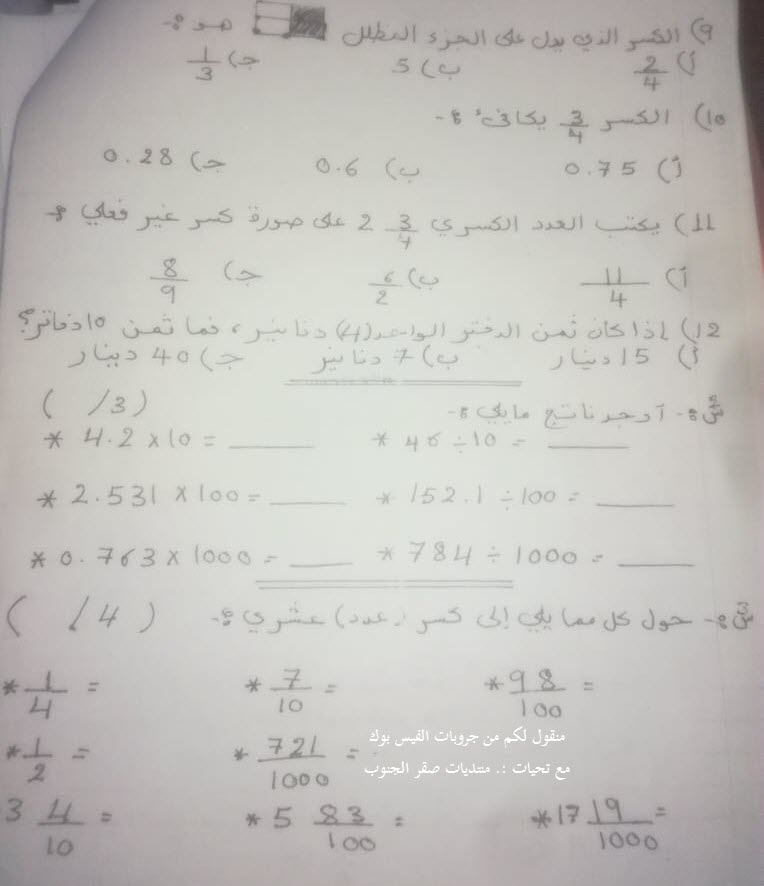 9) الكسر الذي يدل على الجزء المظلل هو :-
أ) 2/4 ب) 5 جـ) 1/3
10) الكسر 3/4 يكافئ :-
أ) 0.75 ب) 0.6 جـ) 0.28
11) يكتب العدد الكسري 2 3/4 على صورة كسر غير فعلي :-
أ) 11/4 ب) 6/2 جـ) 8/9
12) إذا كان ثمن الدفتر الواحد (4) دنانير ، فما ثمن 10 دفاتر؟
أ) 15 دينار ب) 7 دنانير جـ) 40 دينار
س2 :- أوجد ناتج مايلي :- ( /3)
* 4.2 x 10 = ____ * 46 ÷ 10 = ____
* 2.531 x 100 = ____ * 152.1 ÷ 100 = ____
* 0.763 x 1000 = ____ * 784 ÷ 1000 = ____
س3 :- حول كل مما يلي إلى كسر (عدد) عشري :- ( /4)
* 1/4 = * 7/10 = * 98/100 =
* 1/2 = * 721/1000 =
3 4/10 = * 5 83/100 = * 17 19/1000 =
منقول لكم من جروبات الفيس بوك
مع تحيات :. منتديات صقر الجنوب